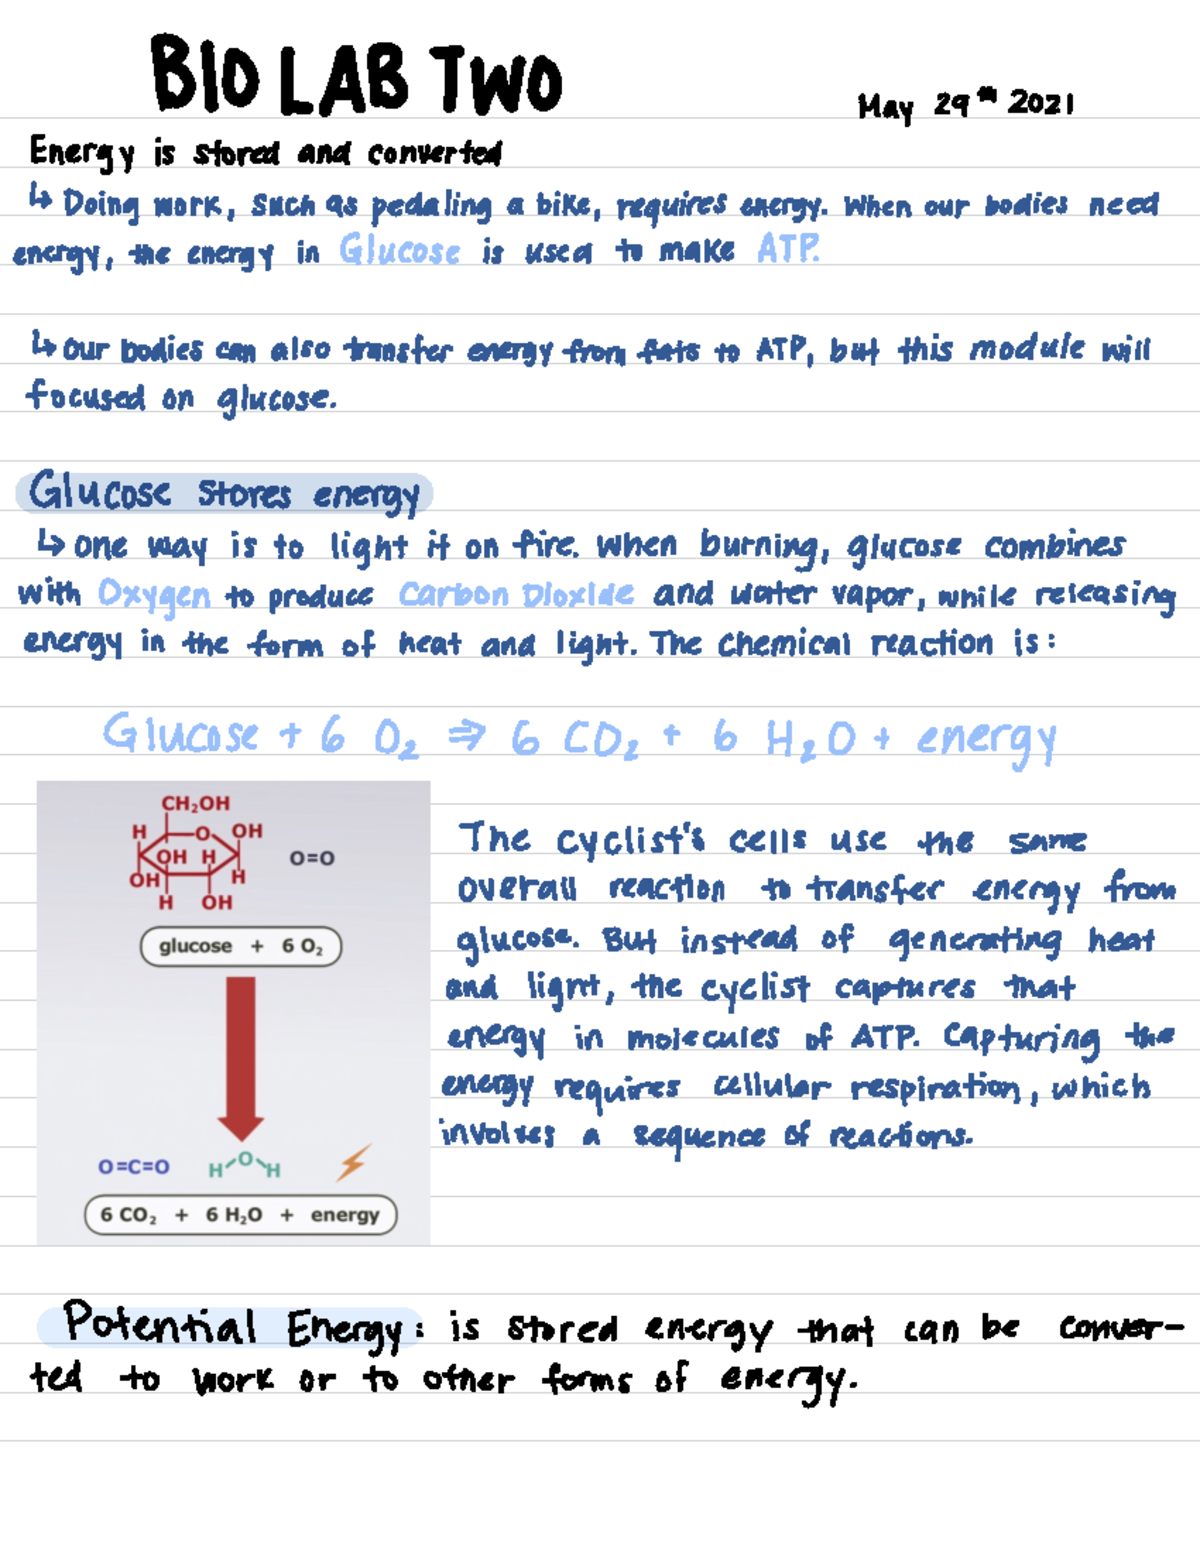 BIO LAB TWO
May 29th 2021
Energy is stored and converted
↳ Doing work, such as pedaling a bike, requires energy. When our bodies need
energy, the energy in Glucose is used to make ATP.
↳ Our bodies can also transfer energy from fats to ATP, but this module will
focused on glucose.
Glucose stores energy
↳ one way is to light it on fire. When burning, glucose combines
with Oxygen to produce Carbon Dioxide and water vapor, while releasing
energy in the form of heat and light. The chemical reaction is:
Glucose + 6 O₂ ⇒ 6 CO₂ + 6 H₂O + energy
CH₂OH
H O OH
OH H
OH H
H OH
O=O
glucose + 6 O₂
O=C=O
H O H
6 CO₂ + 6 H₂O + energy
The cyclist's cells use the same
overall reaction to transfer energy from
glucose. But instead of generating heat
and light, the cyclist captures that
energy in molecules of ATP. Capturing the
energy requires cellular respiration, which
involves a sequence of reactions.
Potential Energy: is stored energy that can be conver-
ted to work or to other forms of energy.